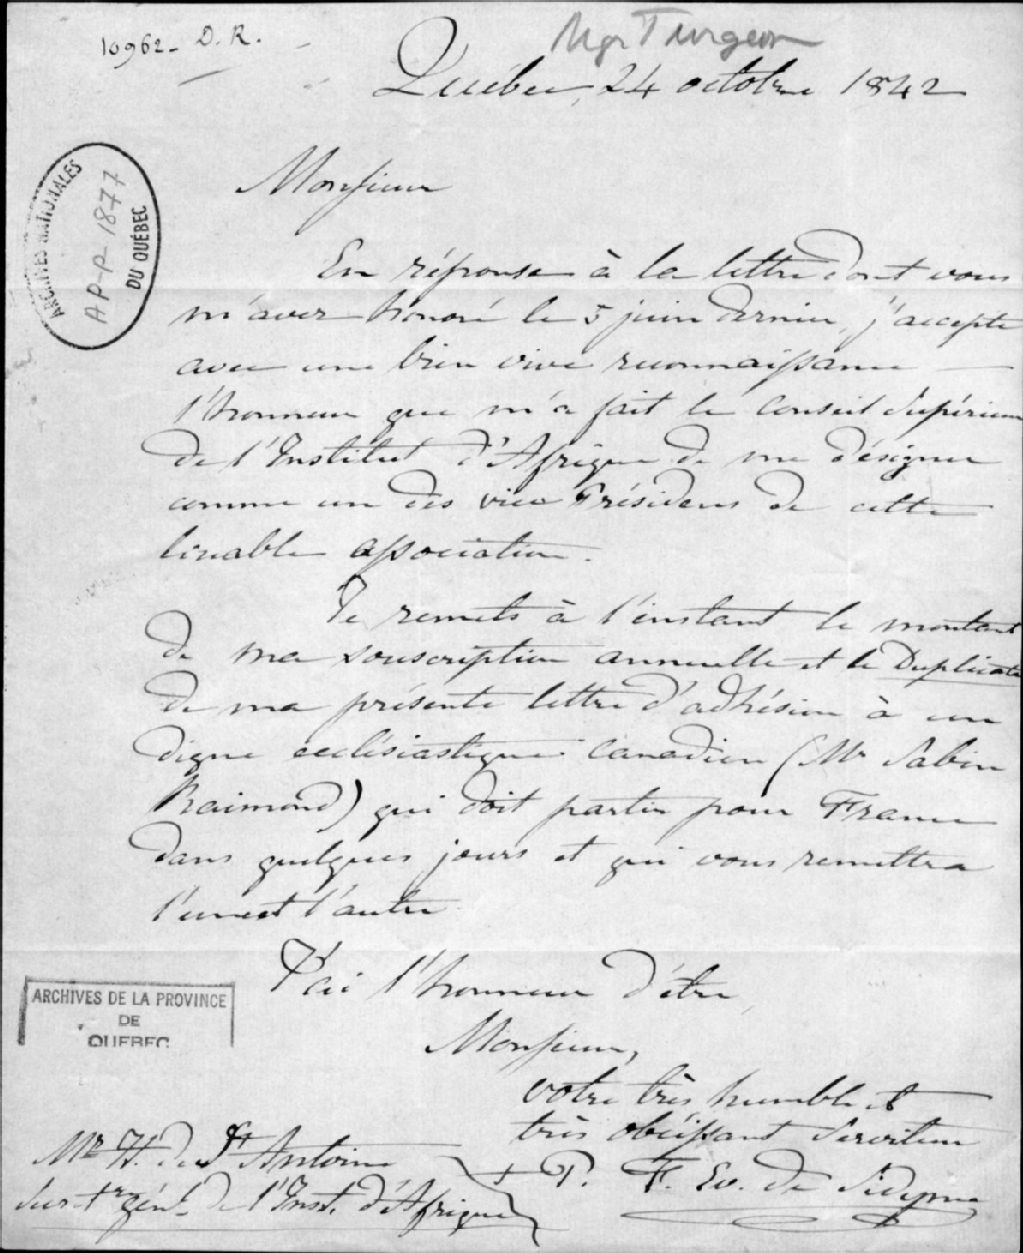 10962- D. R.
Mgr Turgeon
Québec, 24 octobre 1842
ARCHIVES NATIONALES
DU QUÉBEC
A P-P-1877
Monsieur
En réponse à la lettre dont vous
m'avez honoré le 5 juin dernier, j'accepte
avec une bien vive reconnaissance
l'honneur que m'a fait le Conseil Supérieur
de l'Institut d'Afrique de me désigner
comme un des vice Présidens de cette
louable association.
Je remets à l'instant le montant
de ma souscription annuelle et le Duplicata
de ma présente lettre d'adhésion à un
digne ecclésiastique Canadien (Mr Sabin
Raimond) qui doit partir pour France
dans quelques jours et qui vous remettra
l'une et l'autre
J'ai l'honneur d'être
Monsieur,
votre très humble et
très obéissant Serviteur
+ P. F. Ev. de Sidyme
ARCHIVES DE LA PROVINCE
DE
QUEBEC
Mr H. de St Antoine
génl. de l'Inst. d'Afrique